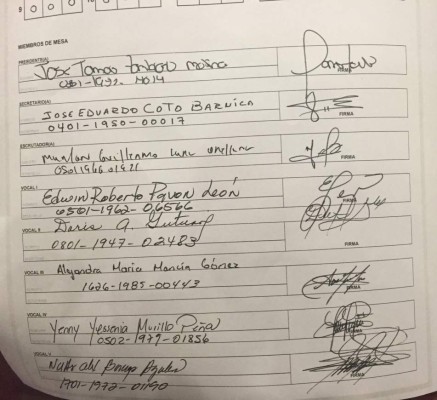 9 0 0 0
MIEMBROS DE MESA
PRESIDENTE(A)
Jose Tomas molina
FIRMA
SECRETARIO(A)
JOSE EDUARDO COTO BARNICA
0401-1950-00017
FIRMA
ESCRUTADOR(A)
Guillermo Luna
FIRMA
VOCAL I
Edwin Roberto Pavon León
0501-1962-06566
FIRMA
VOCAL II
Doris A.
0801-1947-02483
FIRMA
VOCAL III
Alejandra Maria Mancia Gómez
1626-1985-00443
FIRMA
VOCAL IV
Yenny Yessenia Murillo Peña
0502-1979-01856
FIRMA
VOCAL V
1701-1972-01190